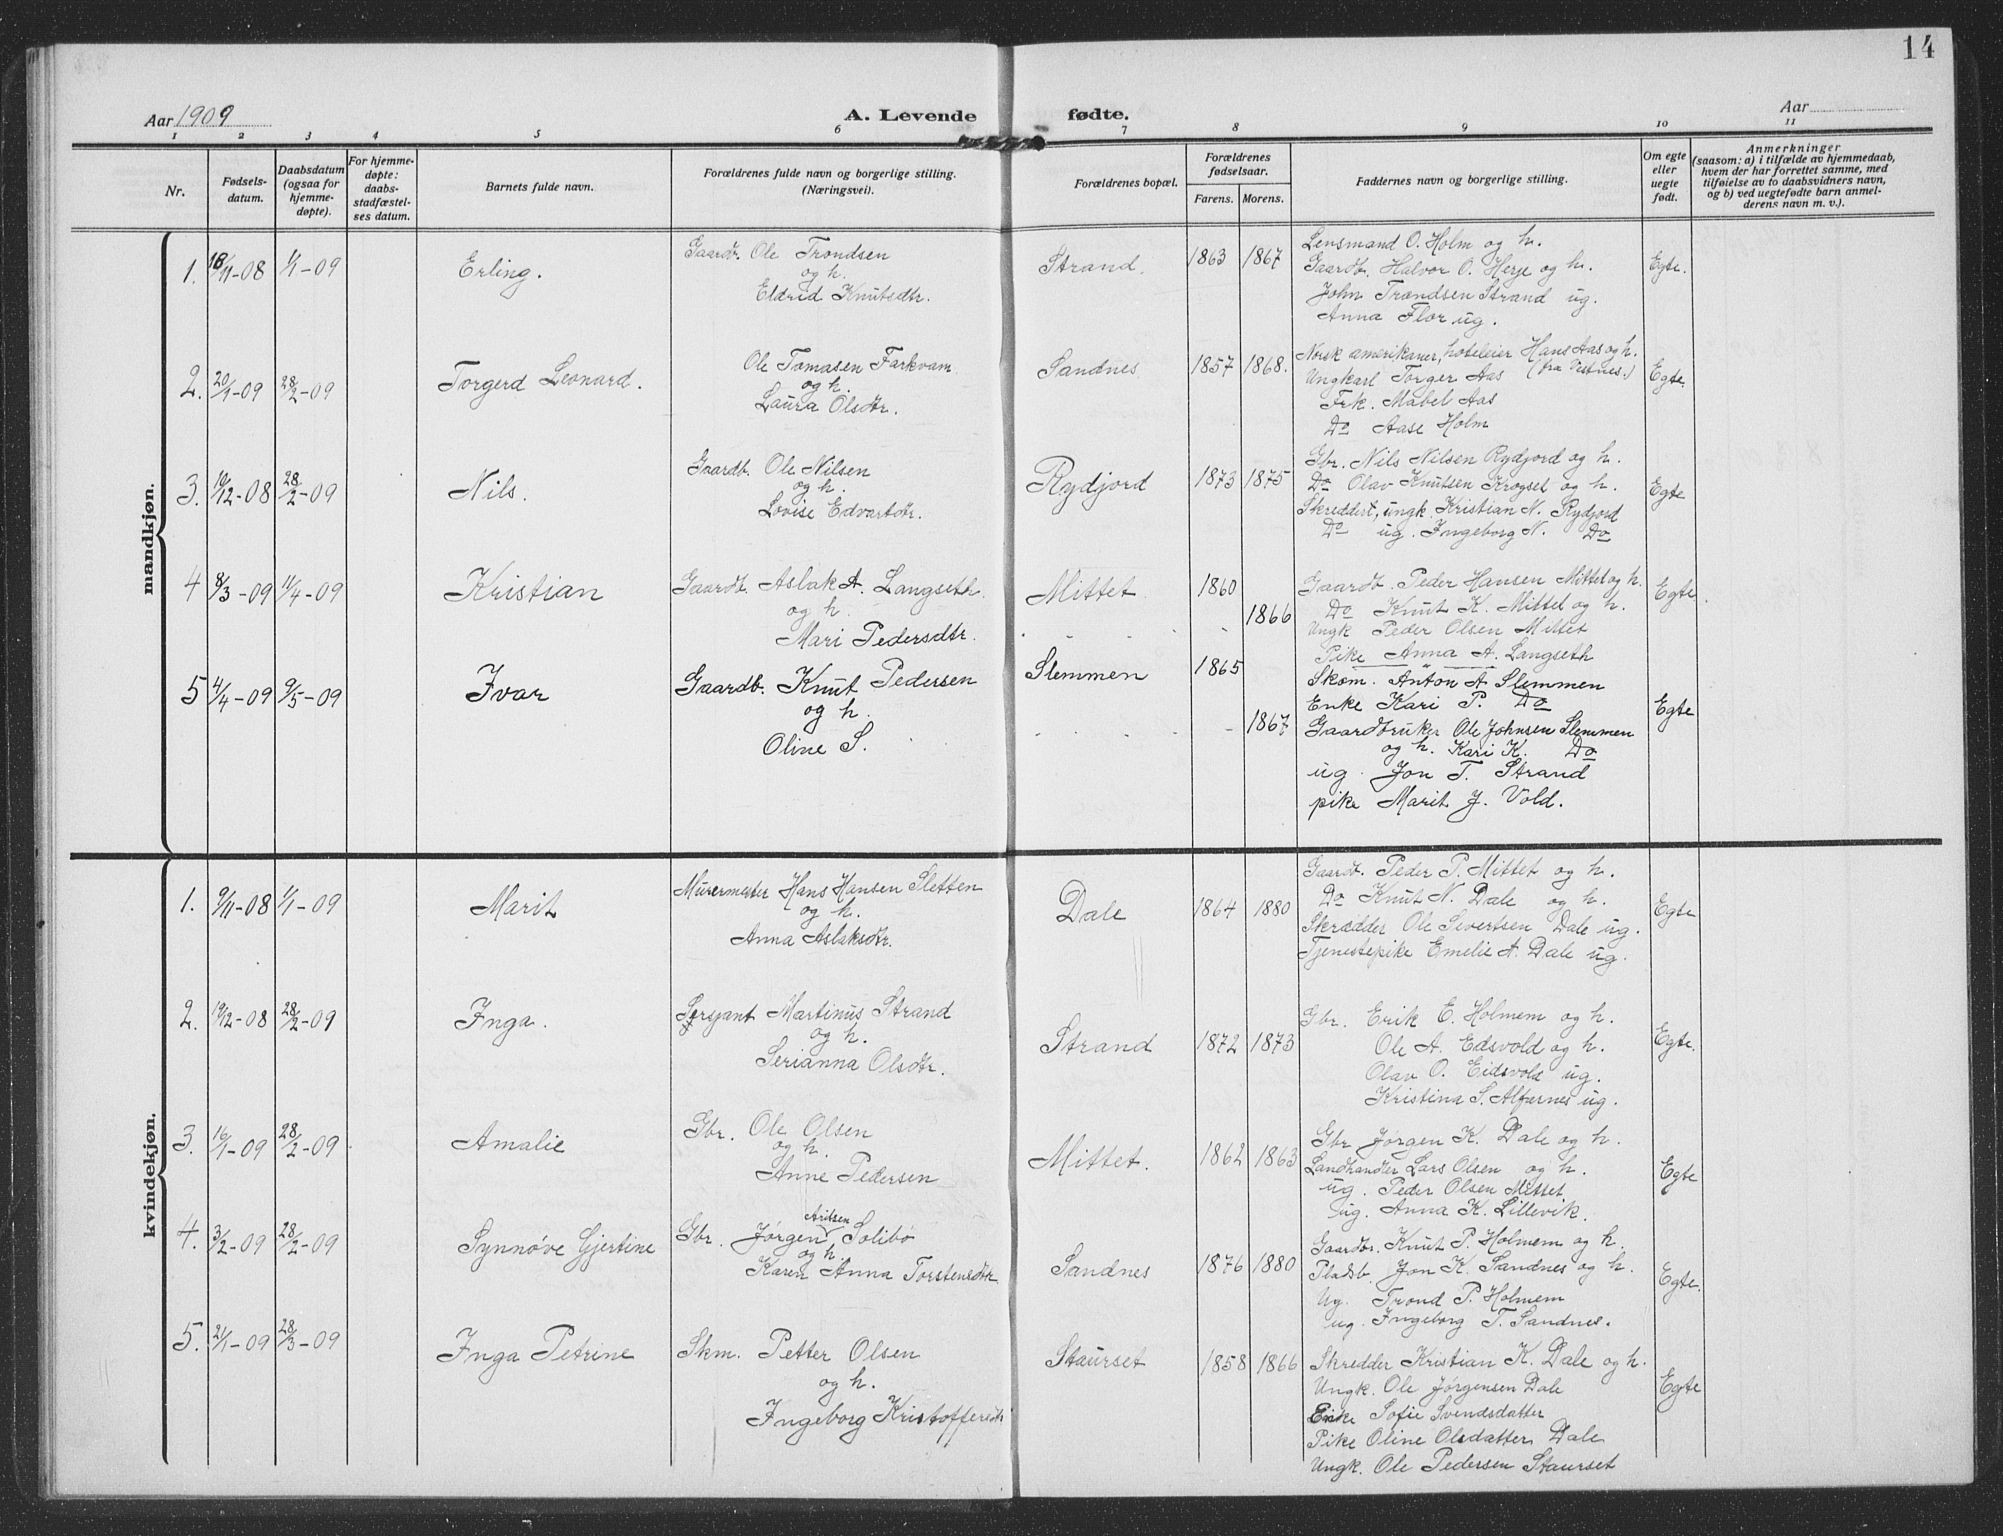 14
Aar 1909
A. Levende fødte.
Aar
1 2 3 4 5 6 7 8 9 10 11
Nr.
Fødsels-
datum.
Daabsdatum
(ogsaa for
hjemme-
døpte).
For hjemme-
døpte:
daabs-
stadfæstel-
ses datum.
Barnets fulde navn.
Forældrenes fulde navn og borgerlige stilling.
(Næringsvei).
Forældrenes bopæl.
Forældrenes
fødselsaar.
Farens. Morens.
Faddernes navn og borgerlige stilling.
Om egte
eller
uegte
født.
Anmerkninger
(saasom: a) i tilfælde av hjemmedaab,
hvem der har forrettet samme, med
tilføielse av to daabsvidners navn,
og b) ved uegtefødte barn anmel-
derens navn m. v.).
mandkjøn.
1. 18/11-08 1/1-09 Erling.
Gaardbr. Ole Trondsen
og h.
Eldrid Knutsdtr.
Strand. 1863 1867
Lensmand O. Holm og h.
Gaardb. Halvor O. Herje og h.
John Trondsen Strand ug.
Anna Flor ug.
Egte.
2. 20/1-09 28/2-09 Torgerd Leonard.
Ole Tomasen Farkvam
og h.
Laura Olsdtr.
Sandnes 1857 1868.
Norsk amerikaner, hoteleier Hans Aas og h.
Ungkarl Torger Aas (fra Vestnes.)
Frk. Mabel Aas
Do Aase Holm
Egte.
3. 16/12-08 28/2-09 Nils.
Gaardb. Ole Nilsen
og h.
Lovise Edvartdtr.
Rydjord 1873 1875
Gbr. Nils Nilsen Rydjord og h.
Do Olav Knutsen Krogset og h.
Skreddert, ungk. Kristian N. Rydjord
Do ug. Ingeborg N. Do
Egte
4 8/3-09 11/4-09 Kristian
Gaardb. Aslak A. Langseth.
og h.
Mari Pedersdtr.
Mittet. 1860
1866
Gaardb. Peder Hansen Mittet og h.
Do Knut K. Mittet og h.
Ungk Peder Olsen Mittet
Pike Anna A. Langseth
Egte.
5 4/4-09 9/5-09 Ivar
Gaardb. Knut Pedersen
og h.
Oline S.
Slemmen 1865
1867
Skøm. Anton A. Slemmen
Enke Kari P. Do
Gaardbruker Ole Johnsen Slemmen
og h. Kari K. Do
ug. Jon T. Strand
pike Marit J. Vold.
Egte
kvindekjøn.
1. 9/11-08 1/1-09 Marit
Murermester Hans Hansen Sletten
og h.
Anna Aslaksdtr.
Dale 1864 1880
Gaardb. Peder P. Mittet og h.
Do Knut N. Dale og h.
Skrædder Ole Sivertsen Dale ug.
Tjenestepike Emelie A. Dale ug.
Egte
2. 19/12-08 28/2-09 Inga.
Sersjant Martinus Strand
og h.
Serianna Olsdtr.
Strand 1872 1873
Gbr. Erik E. Holmem og h.
Ole A. Edsvold og h.
Olav O. Eidsvold ug.
Kristina S. Alfarnes ug.
Egte.
3. 16/1-09 28/2-09 Amalie
Gbr. Ole Olsen
og h.
Anne Pedersen
Mittet. 1862 1863
Gbr Jørgen K. Dale og h.
Landhandler Lars Olsen og h.
ug. Peder Olsen Mittet
ug. Anna K. Lillevik.
Egte
4. 3/2-09 28/2-09 Synnøve Gjertine
Gbr. Jørgen Aritsen Solibø
og h.
Karen Anna Torstensdtr
Sandnes 1876 1880
Gaardbr. Knut P. Holmem og h.
Pladsb. Jon K. Sandnes og h.
Ug. Trond P. Holmem
ug. Ingeborg T. Sandnes.
Egte.
5. 21/1-09 28/3-09 Inga Petrine
Skm. Petter Olsen
og h.
Ingeborg Kristoffersdtr
Staurset 1858 1866
Skredder Kristian K. Dale og h.
Ungk. Ole Jørgensen Dale
Enke Sofie Svendsdatter
Pike Oline Olsdatter Dale
Ungk. Ole Pedersen Staurset
Egte